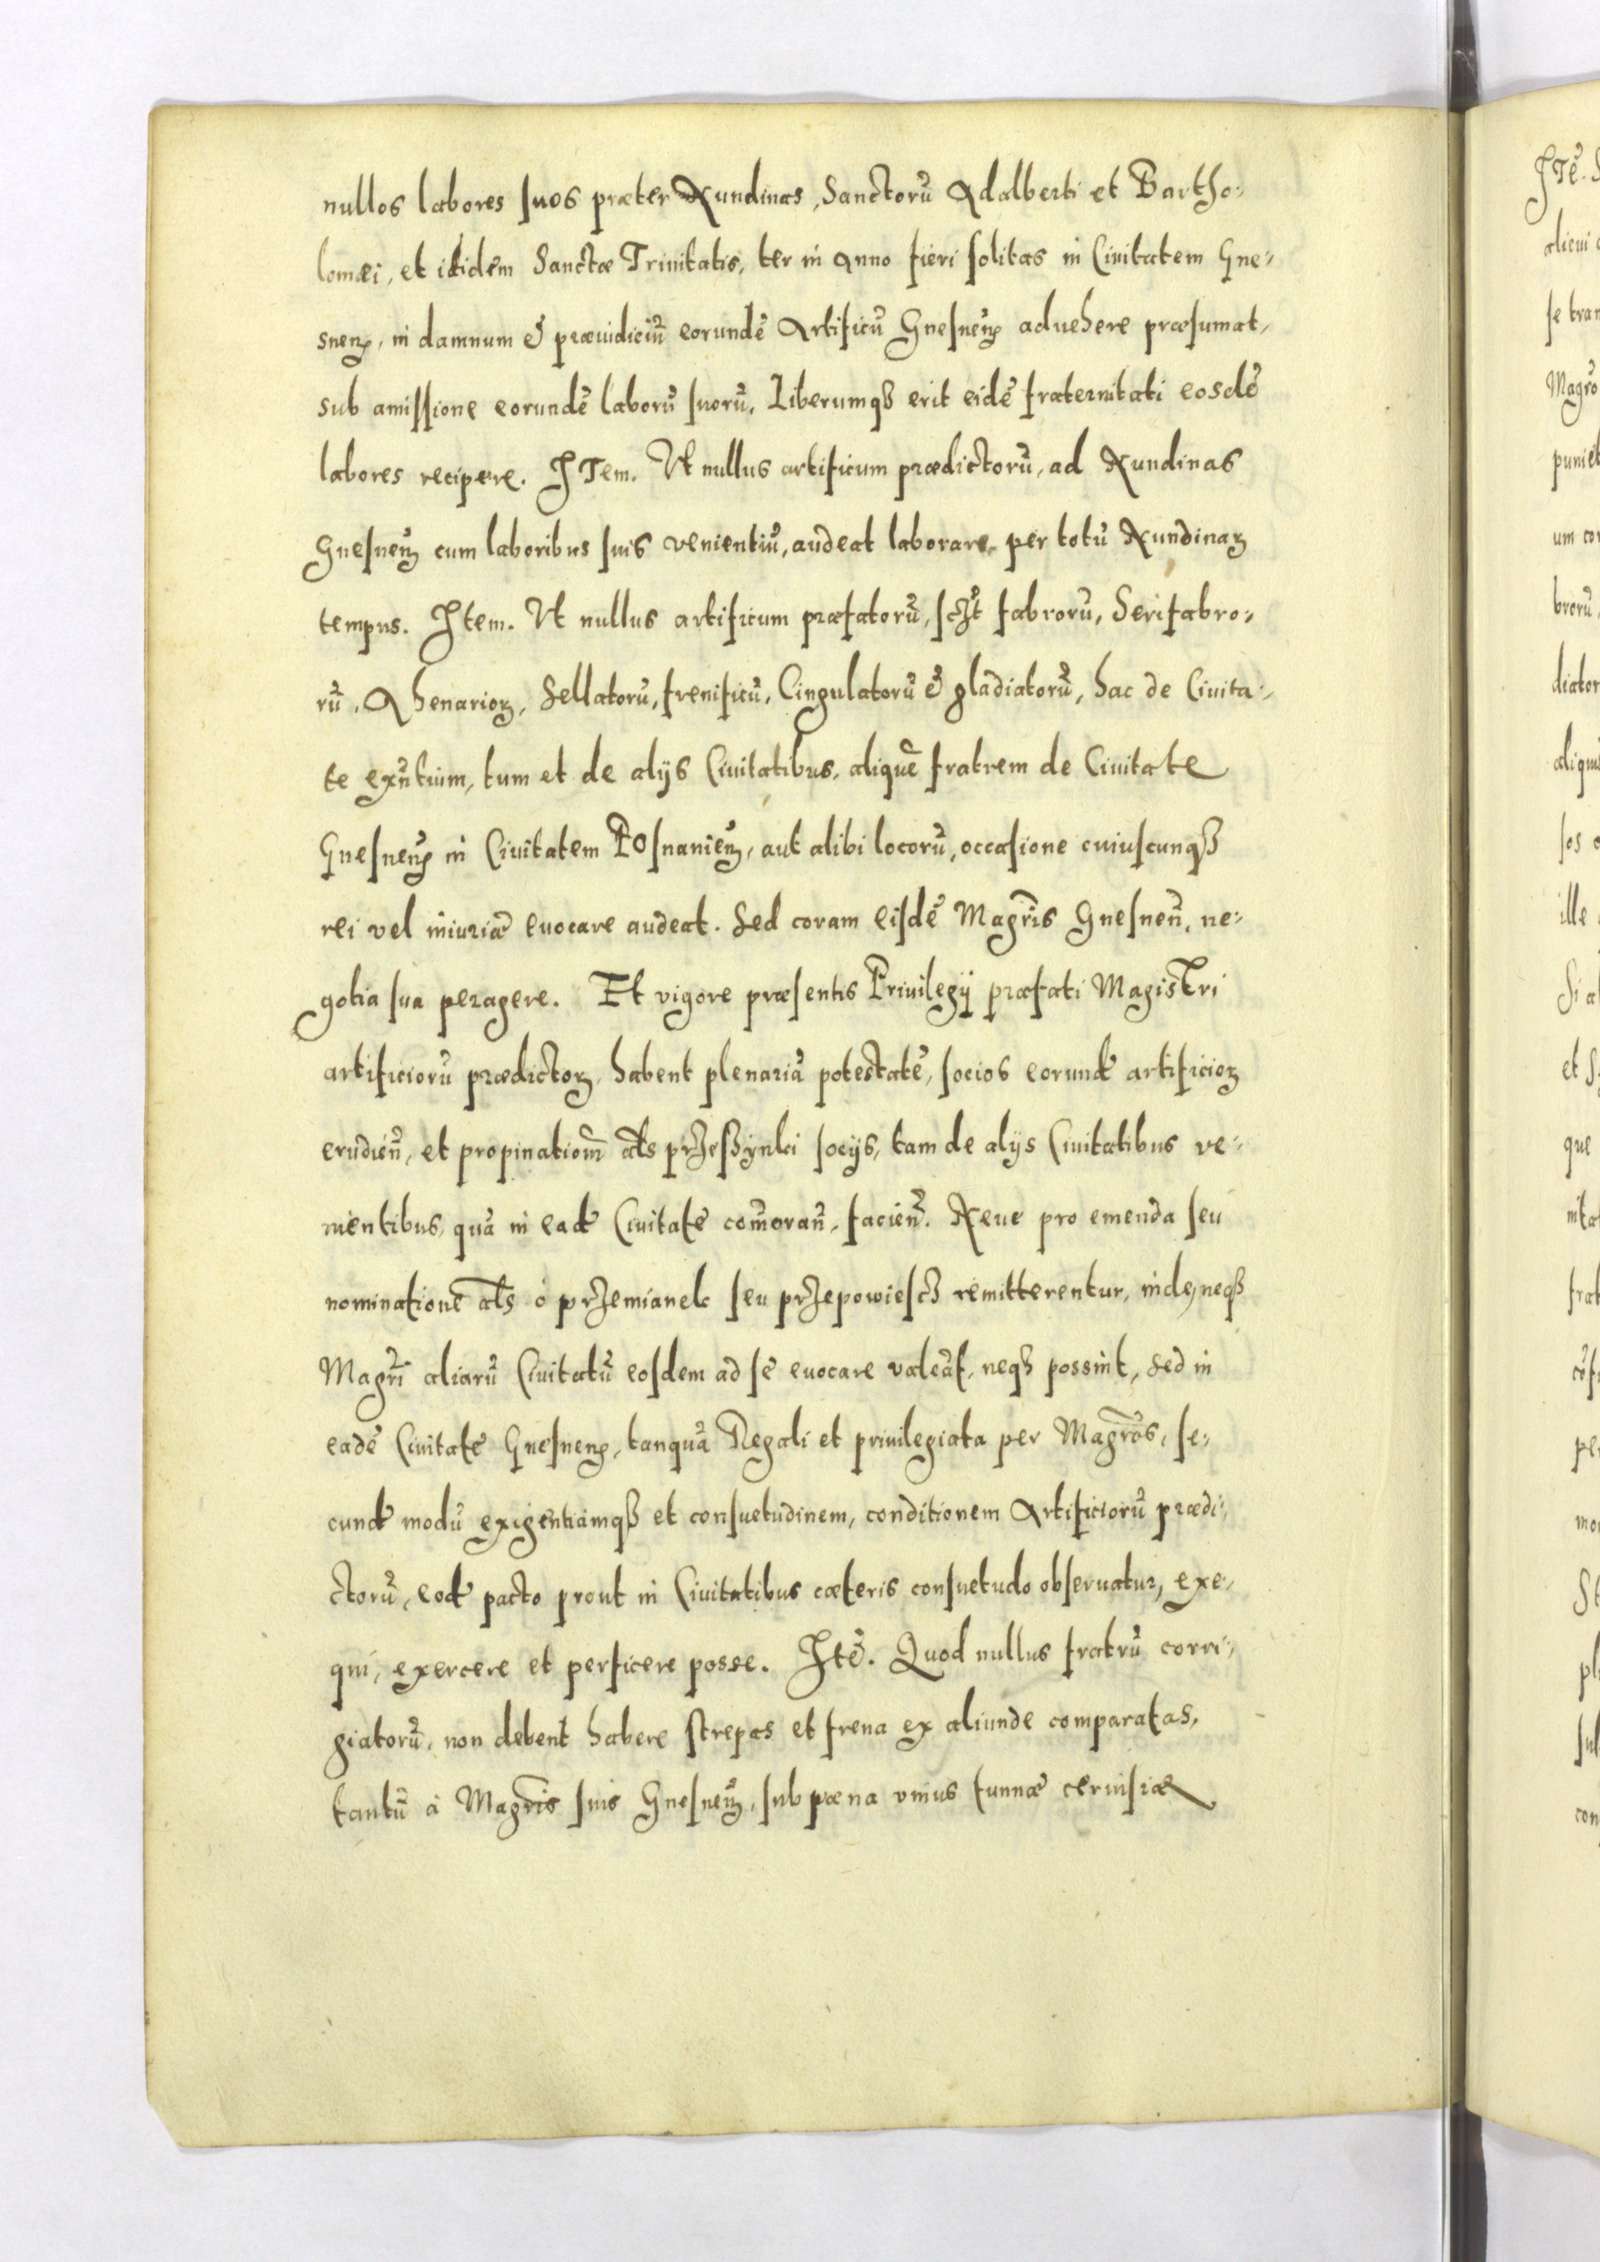 nullos labores suos præter Nundinas, Sanctorũ Adalberti et Bartho:
lomæi, et itidem Sanctæ Trinitatis, ter in Anno fieri solitas in Ciuitatem Gne:
snenꝭ, in damnum & præiudiciũ eorundẽ Artificũ Gnesnenꝭ aduehere præsumat,
sub amissione eorundẽ laborũ suorũ, Liberumqꝫ erit eidẽ fraternitati eosdẽ
labores recipere. ITem. Vt nullus artificum prædictorũ, ad Nundinas
Gnesnenꝭ cum laboribus suis venientiũ, audeat laborare, per totũ Nundinaꝝ
tempus. Item. Vt nullus artificum præfatorũ, scꝫt fabrorũ, Serifabro:
rũ, Ahenarioꝝ, Sellatorũ, frenificũ, Cingulatorũ & gladiatorũ, hac de Ciuita:
te exũtium, tum et de alijs Ciuitatibus, aliquẽ fratrem de Ciuitate
Gnesnenꝭ in Ciuitatem POsnanienꝭ, aut alibi locorũ, occasione cuiuscunqꝫ
rei vel iniuriæ euocare audeat. Sed coram eisdẽ Magr̃is Gnesneñ, ne:
gotia sua peragere. Et vigore præsentis Priuilegij præfati Magistri
artificiorũ prædictoꝝ, habent plenariã potestatẽ, socios eorund artificioꝝ
erudieñ, et propinationẽ als przeszynki socijs, tam de alijs Ciuitatibus ve:
nientibus, quã in ead Ciuitate com̃orañ, facieñ. Neue pro emenda seu
nominatione als o przemianek seu przepowiescz remitterentur, inde, neqꝫ
Magr̃i aliarũ Ciuitatũ eosdem ad se euocare valeãt, neqꝫ possint, Sed in
eadẽ Ciuitate Gnesnenꝭ, tanquã Regali et priuilegiata per Magr̃os, se:
cund modũ exigentiamqꝫ et consuetudinem, conditionem Artificiorũ prædi:
ctorũ, eod pacto prout in Ciuitatibus cæteris consuetudo obseruatur, exe:
qui, exercere et perficere posse. Itẽ. Quod nullus fratrũ corri:
giatorũ, non debent habere strepas et frena ex aliunde comparatas,
tantũ à Magr̃is suis Gnesnenꝭ, sub pæna vnius tunnæ ceruisiæ